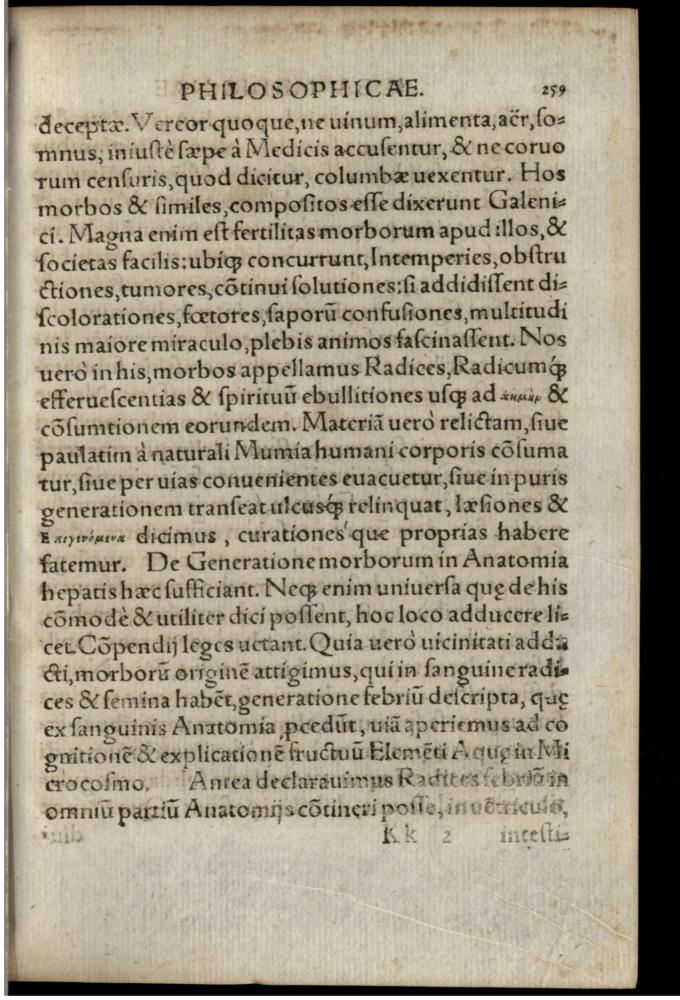 PHILOSOPHICAE. 259
deceptæ. Vereor quoque, ne uinum, alimenta, aër, ſo⸗
mnus, iniuſtè ſæpe à Medicis accuſentur, & ne coruo
rum cenſuris, quod dicitur, columbæ uexentur. Hos
morbos & ſimiles, compoſitos eſſe dixerunt Galeni⸗
ci. Magna enim eſt fertilitas morborum apud illos, &
ſocietas facilis: ubiqꝫ concurrunt, Intemperies, obſtru
ctiones, tumores, cõtinui ſolutiones: ſi addidiſſent di⸗
ſcolorationes, fœtores, ſaporũ confuſiones, multitudi
nis maiore miraculo, plebis animos faſcinaſſent. Nos
uerò in his, morbos appellamus Radices, Radicumqꝫ
efferueſcentias & ſpirituũ ebullitiones uſqꝫ ad ἀκμὴν &
cõſumtionem eorundem. Materiã uerò relictam, ſiue
paulatim à naturali Mumia humani corporis cõſuma
tur, ſiue per uias conuenientes euacuetur, ſiue in puris
generationem tranſeat ulcusqꝫ relinquat, læſiones &
Επιγινόμενα dicimus, curationes que proprias habere
fatemur. De Generatione morborum in Anatomia
hepatis hæc ſufficiant. Neqꝫ enim uniuerſa quę de his
cõmodè & utiliter dici poſſent, hoc loco adducere li⸗
cet. Cõpendij leges uetant. Quia uerò uicinitati addu
cti, morborũ originẽ attigimus, qui in ſanguine radi⸗
ces & ſemina habẽt, generatione febriũ deſcripta, quę
ex ſanguinis Anatomia ꝓcedũt, uiã aperiemus ad co
gnitionẽ & explicationẽ fructuũ Elemẽti Aquę in Mi
crocoſmo. Antea declarauimus Radices febriũ in
omniũ partiũ Anatomijs cõtineri poſſe, in uẽtriculo,
Kk 2 inteſti⸗